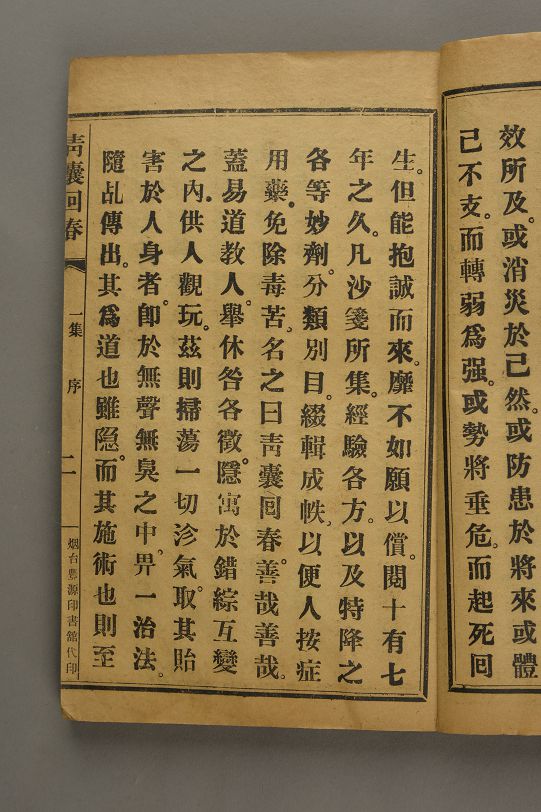 效所及。或消災於已然。或防患於將來或體
己不支。而轉弱爲强。或勢將垂危。而起死回
生。但能抱誠而來。靡不如願以償。閱十有七
年之久。凡沙箋所集。經驗各方。以及特降之
各等妙劑。分類別目。綴輯成帙。以便人按症
用藥。免除毒苦。名之曰靑囊回春。善哉善哉。
蓋易道教人。舉休咎各徵。隱寓於錯綜互變
之內。供人觀玩。茲則掃蕩一切沴氣。取其貽
害於人身者。卽於無聲無臭之中。畀一治法。
隨乩傳出。其爲道也雖隱。而其施術也則至
靑囊回春
一集 序 二
烟台豐源印書館代印